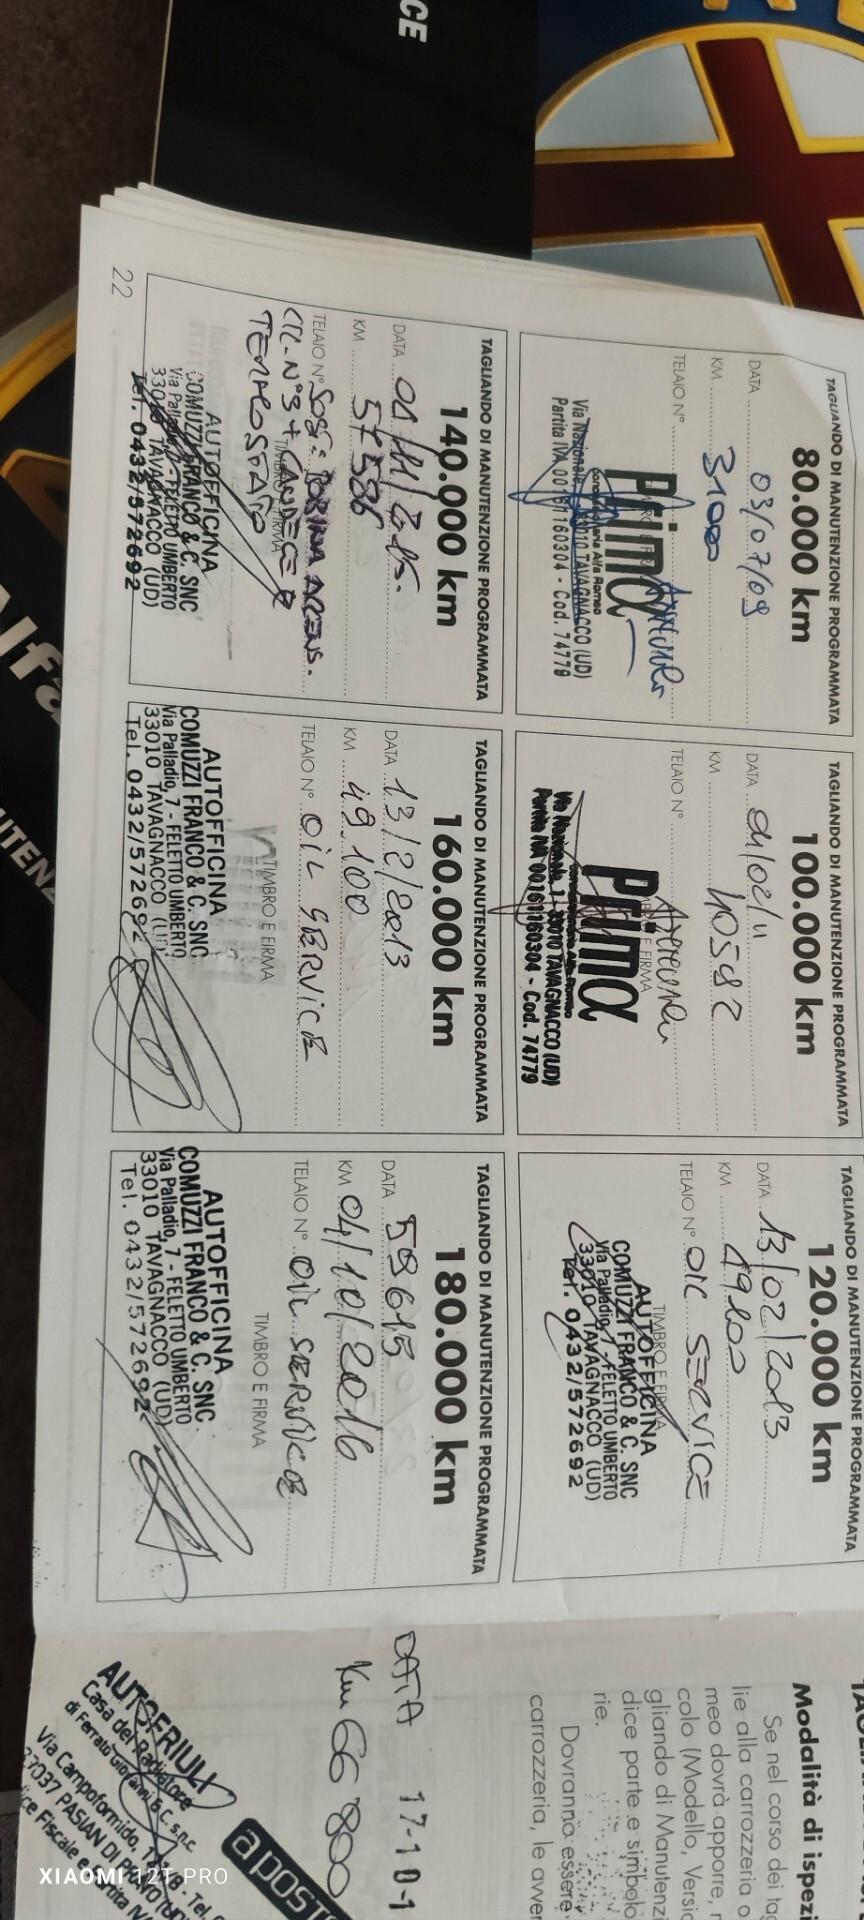 CE
TAGLIANDO DI MANUTENZIONE PROGRAMMATA
80.000 km
DATA 03/07/09
KM 31000
TELAIO N°
Prima
Concessionaria Alfa Romeo
Via Nazionale, 33010 TAVAGNACCO (UD)
Partita IVA 00161160304 - Cod. 74779
TAGLIANDO DI MANUTENZIONE PROGRAMMATA
100.000 km
DATA 01/02/11
KM 40582
TELAIO N°
E FIRMA
Prima
Concessionaria Alfa Romeo
Via Nazionale, 1 - 33010 TAVAGNACCO (UD)
Partita IVA 00161160304 - Cod. 74779
TAGLIANDO DI MANUTENZIONE PROGRAMMATA
120.000 km
DATA 13/02/2013
KM 49100
TELAIO N° OIL SERVICE
TIMBRO E FIRMA
AUTOFFICINA
COMUZZI FRANCO & C. SNC
Via Palladio, 7 - FELETTO UMBERTO
33010 TAVAGNACCO (UD)
Tel. 0432/572692
TAGLIANDO DI MANUTENZIONE PROGRAMMATA
140.000 km
DATA 01/11/2015.
KM 57586
TELAIO N° SOST: BOBINA ACCENS.
CIL. N°3 + CANDELE E
TERMOSTATO
TIMBRO E FIRMA
AUTOFFICINA
COMUZZI FRANCO & C. SNC
Via Palladio, 7 - FELETTO UMBERTO
33010 TAVAGNACCO (UD)
Tel. 0432/572692
TAGLIANDO DI MANUTENZIONE PROGRAMMATA
160.000 km
DATA 13/2/2013
KM 49.100
TELAIO N° OIL SERVICE
TIMBRO E FIRMA
AUTOFFICINA
COMUZZI FRANCO & C. SNC
Via Palladio, 7 - FELETTO UMBERTO
33010 TAVAGNACCO (UD)
Tel. 0432/572692
TAGLIANDO DI MANUTENZIONE PROGRAMMATA
180.000 km
DATA 59615
KM 04/10/2016
TELAIO N° OIL SERVICE
TIMBRO E FIRMA
AUTOFFICINA
COMUZZI FRANCO & C. SNC
Via Palladio, 7 - FELETTO UMBERTO
33010 TAVAGNACCO (UD)
Tel. 0432/572692
22
Modalità di ispezi
Se nel corso dei tag
lie alla carrozzeria o
meo dovrà apporre, n
colo (Modello, Versio
gliando di Manutenzi
dice parte e simbolo
rie.
Dovranno essere
carrozzeria, le avver
DATA 17-10-1
Km 66800
AUTOFRIULI
Casa del Radiatore
di Ferrato Giovanni & C. s.n.c.
Via Campoformido,
Tel.
PASIAN DI
a post
XIAOMI 12T PRO